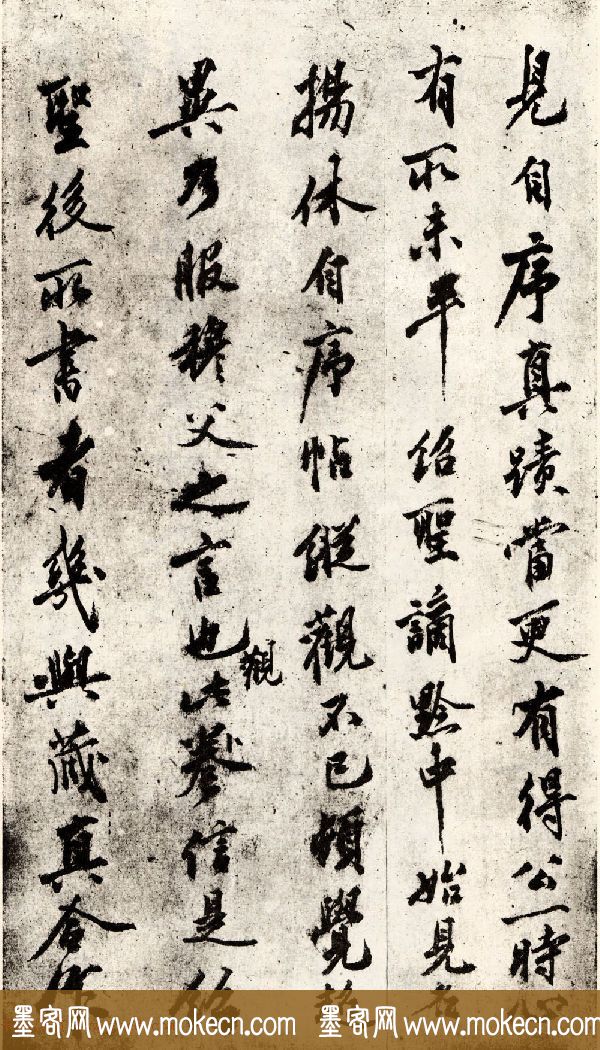 見自序真蹟當更有得公一時
有所未平 紹聖謫黔中始見石
揚休自序帖縱觀不已頓覺
異乃服穆父之言也觀此卷信是紹
聖後所書者幾與藏真合作
墨客网 www.mokecn.com 墨客网 www.mokecn.com